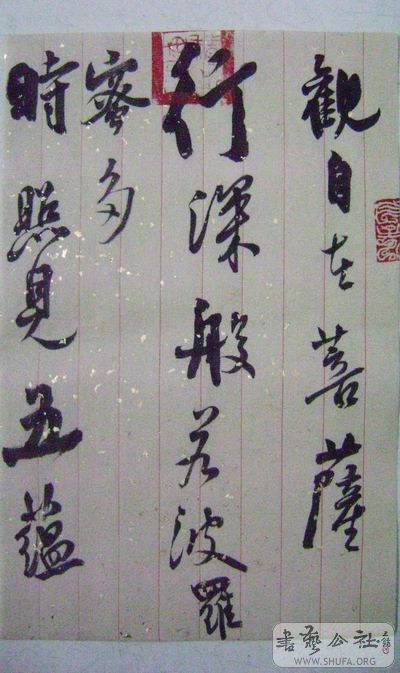 觀自在菩薩
行深般若波羅
蜜多
時照見五蘊
書藝公社
WWW.SHUFA.ORG